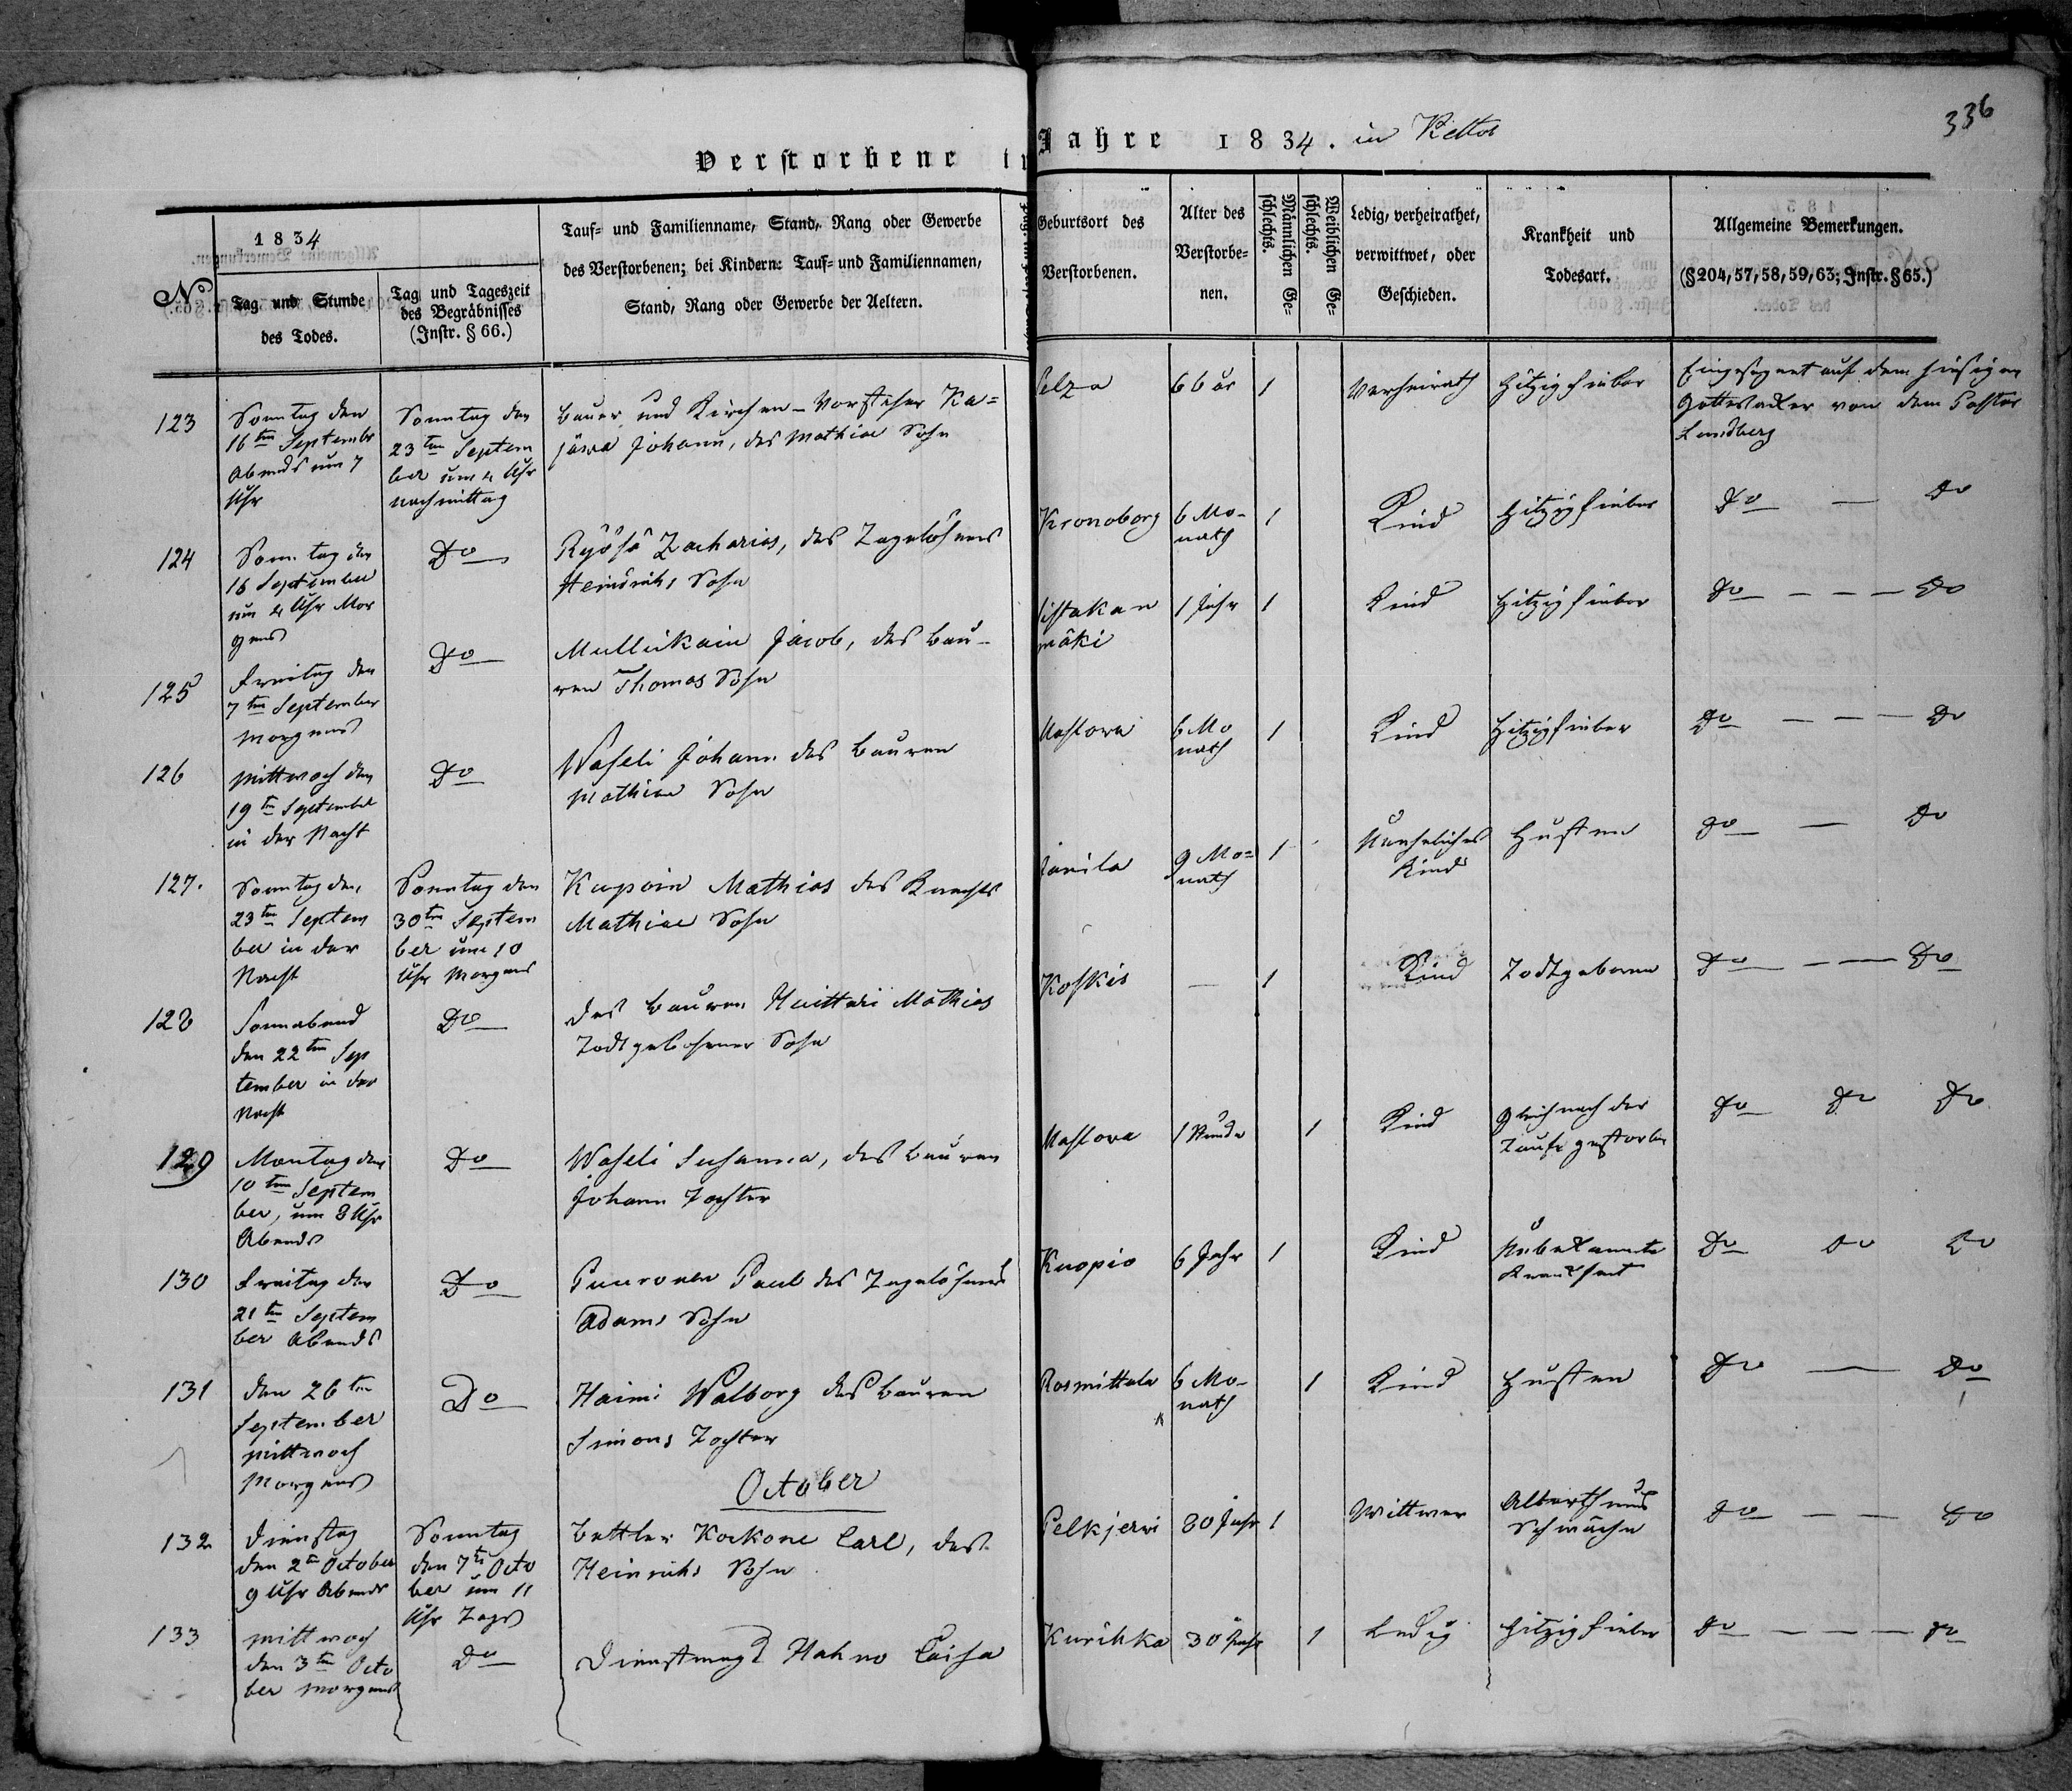 336
Verstorbene im Jahre 1834. in Keltos
No
1834
Tag und Stunde
des Todes.
Tag und Tageszeit
des Begräbnisses
(Instr. § 66.)
Tauf= und Familienname, Stand, Rang oder Gewerbe
des Verstorbenen; bei Kindern: Tauf= und Familiennamen,
Stand, Rang oder Gewerbe der Aeltern.
Geburtsort des
Verstorbenen.
Alter des
Verstorbe-
nen.
Männlichen Ge=
schlechts.
Weiblichen Ge=
schlechts.
Ledig, verheirathet,
verwittwet, oder
Geschieden.
Krankheit und
Todesart.
Allgemeine Bemerkungen.
(§ 204, 57, 58, 59, 63; Instr. § 65.)
123
Sonntag den
16ten Septembr
Abends um 7
Uhr
Sonntag den
23ten Septem
ber um 4 Uhr
nachmittag
Bauer und Kirchen-Vorsteher Ka=
jäwä Johann, des Mathiae Sohn
Pelza
66
1
Verheirath
Hitzigfieber
Eingesegnet auf dem hiesigen
Gottesacker von dem Pastor
Lundberg
124
Sonntag den
16 September
um 4 Uhr Mor
gens
Do
Ryösö Zacharias, des Tagelöhners
Heindrichs Sohn
Kronoborg
6 Mo-
nath
1
Kind
Hitzigfieber
Do — Do
125
Freitag den
7ten September
Morgens
Do
Mullukain Jacob, des Bau-
ren Thomas Sohn
mäki
1 Jahr
1
Kind
Hitzigfieber
Do — — — Do
126
Mittwoch den
19ten September
in der Nacht
Do
Waseli Johann des Bauren
Mathiae Sohn
Maslowa
6 Mo
nath
1
Kind
Hitzigfieber
Do — — — Do
127.
Sonntag den
23ten Septem
ber in der
Nacht
Sonntag den
30ten Septem
ber um 10
Uhr Morgens
Kupain Mathias des Knechts
Mathiae Sohn
Janila
9 Mo=
nath
1
Unehliches
Kind
Husten
Do — Do
128
Sonnabend
den 22ten Sep
tember in der
Nacht
Do
des Bauren Huittari Mathias
Todtgebohrner Sohn
Koskis
—
1
Kind
Todtgeboren
Do — — Do
129
Montag den
10ten Septem
ber, um 8 Uhr
Abends
Do
Waseli Susanna, des Bauren
Johann Tochter
Maslowa
1 Stunde
1
Kind
Gleich nach der
Taufe gestorben
Do Do Do
130
Freitag den
21ten Septem
ber Abends
Do
Puuronen Paul des Tagelöhners
Adams Sohn
Kuopio
6 Jahr
1
Kind
Unbekannte
Krankheit
Do Do Do
131
den 26ten
September
Mittwoch
Morgens
Do
Haimi Walborg des Bauren
Simons Tochter
Rosmittala
6 Mo-
nath
1
Kind
Husten
Do — Do
October
132
Dienstag
den 2ten October
9 Uhr Abends
Sonntag
den 7ten Octo
ber um 11
Uhr Tags
Bettler Kockone Carl, des
Heinrichs Sohn
Pelkjerwi
80 Jahr
1
Wittwer
Schwäche
Do — — — Do
133
Mittwoch
den 3ten Octo
ber Morgens
Do
Dienstmagd Hakno Caisa
Kurikka
30 Jahr
1
Ledig
Hitzigfieber
Do — — — Do